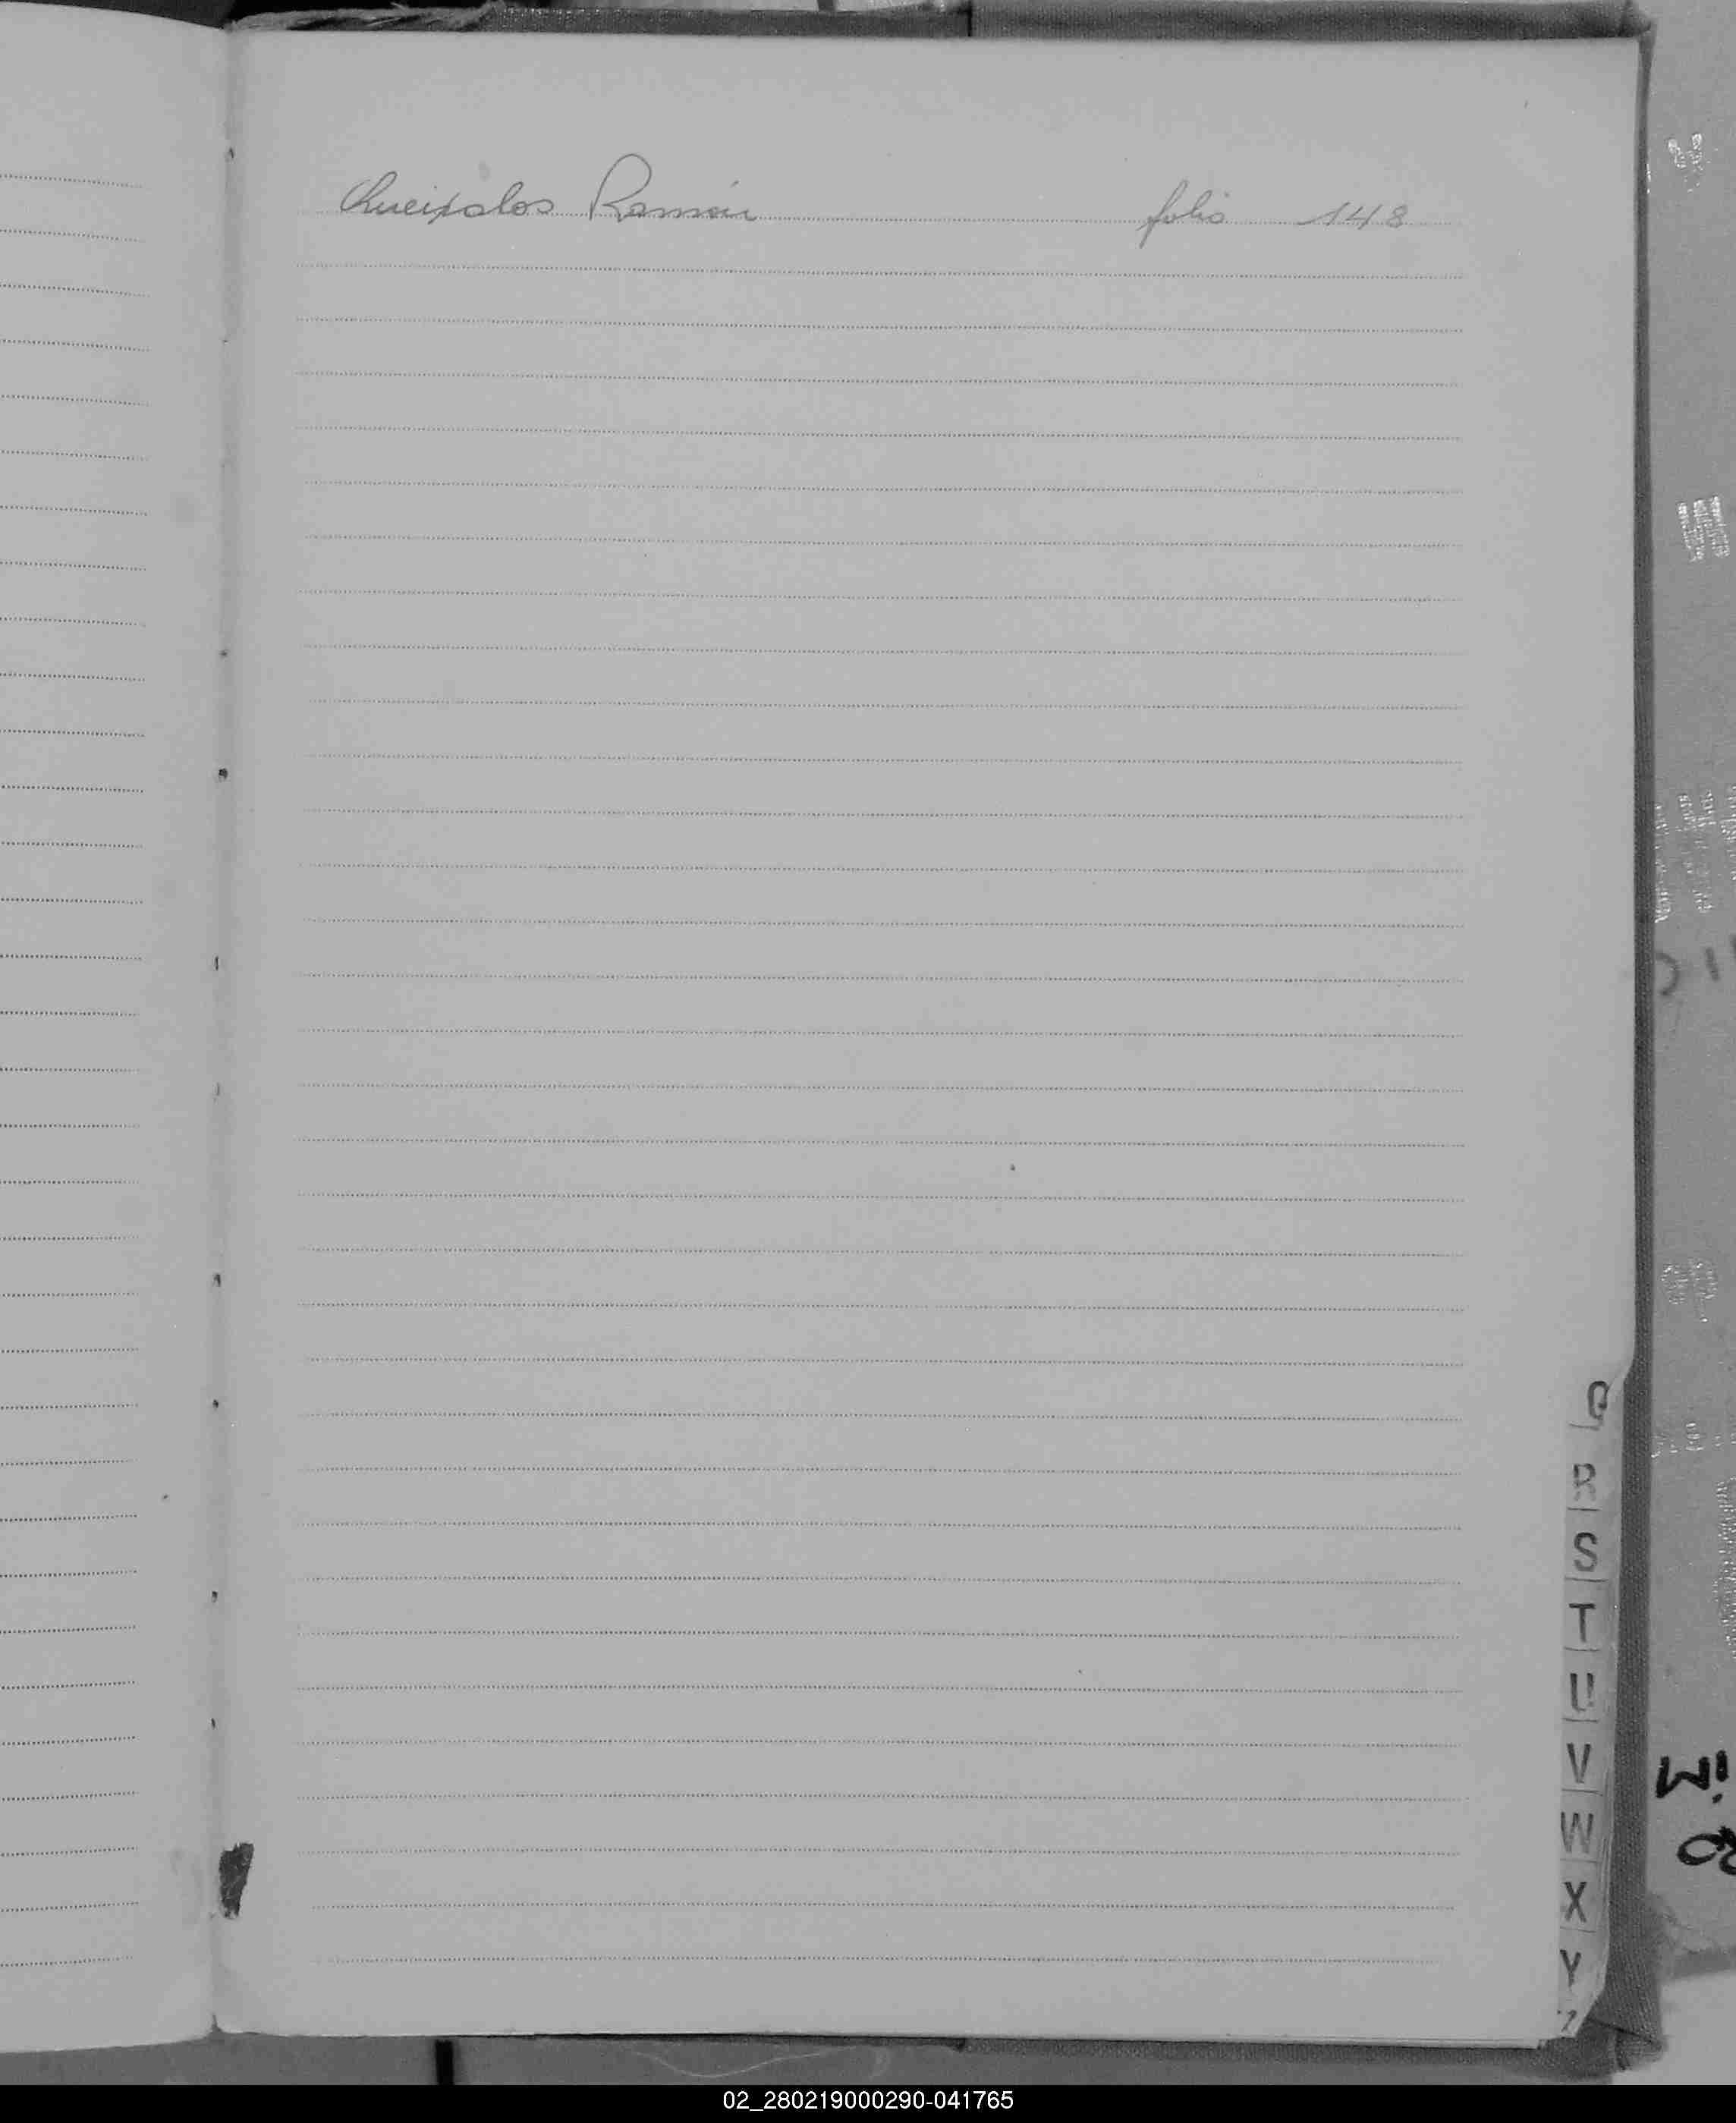 Queipalos Ramón folio 148
Q
R
S
T
U
V
W
X
Y
Z
02_280219000290-041765